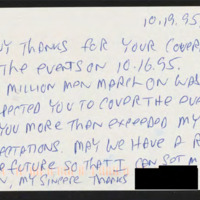 10.19.95
NY THANKS FOR YOUR COVER
THE EVENTS ON 10.16.95.
MILLION MAN MARCH ON WA
PECTED YOU TO COVER THE EVE
YOU MORE THAN EXCEEDED MY
CTATIONS. MAY WE HAVE A R
E FUTURE SO THAT I CAN NOT M
N, MY SINCERE THANKS